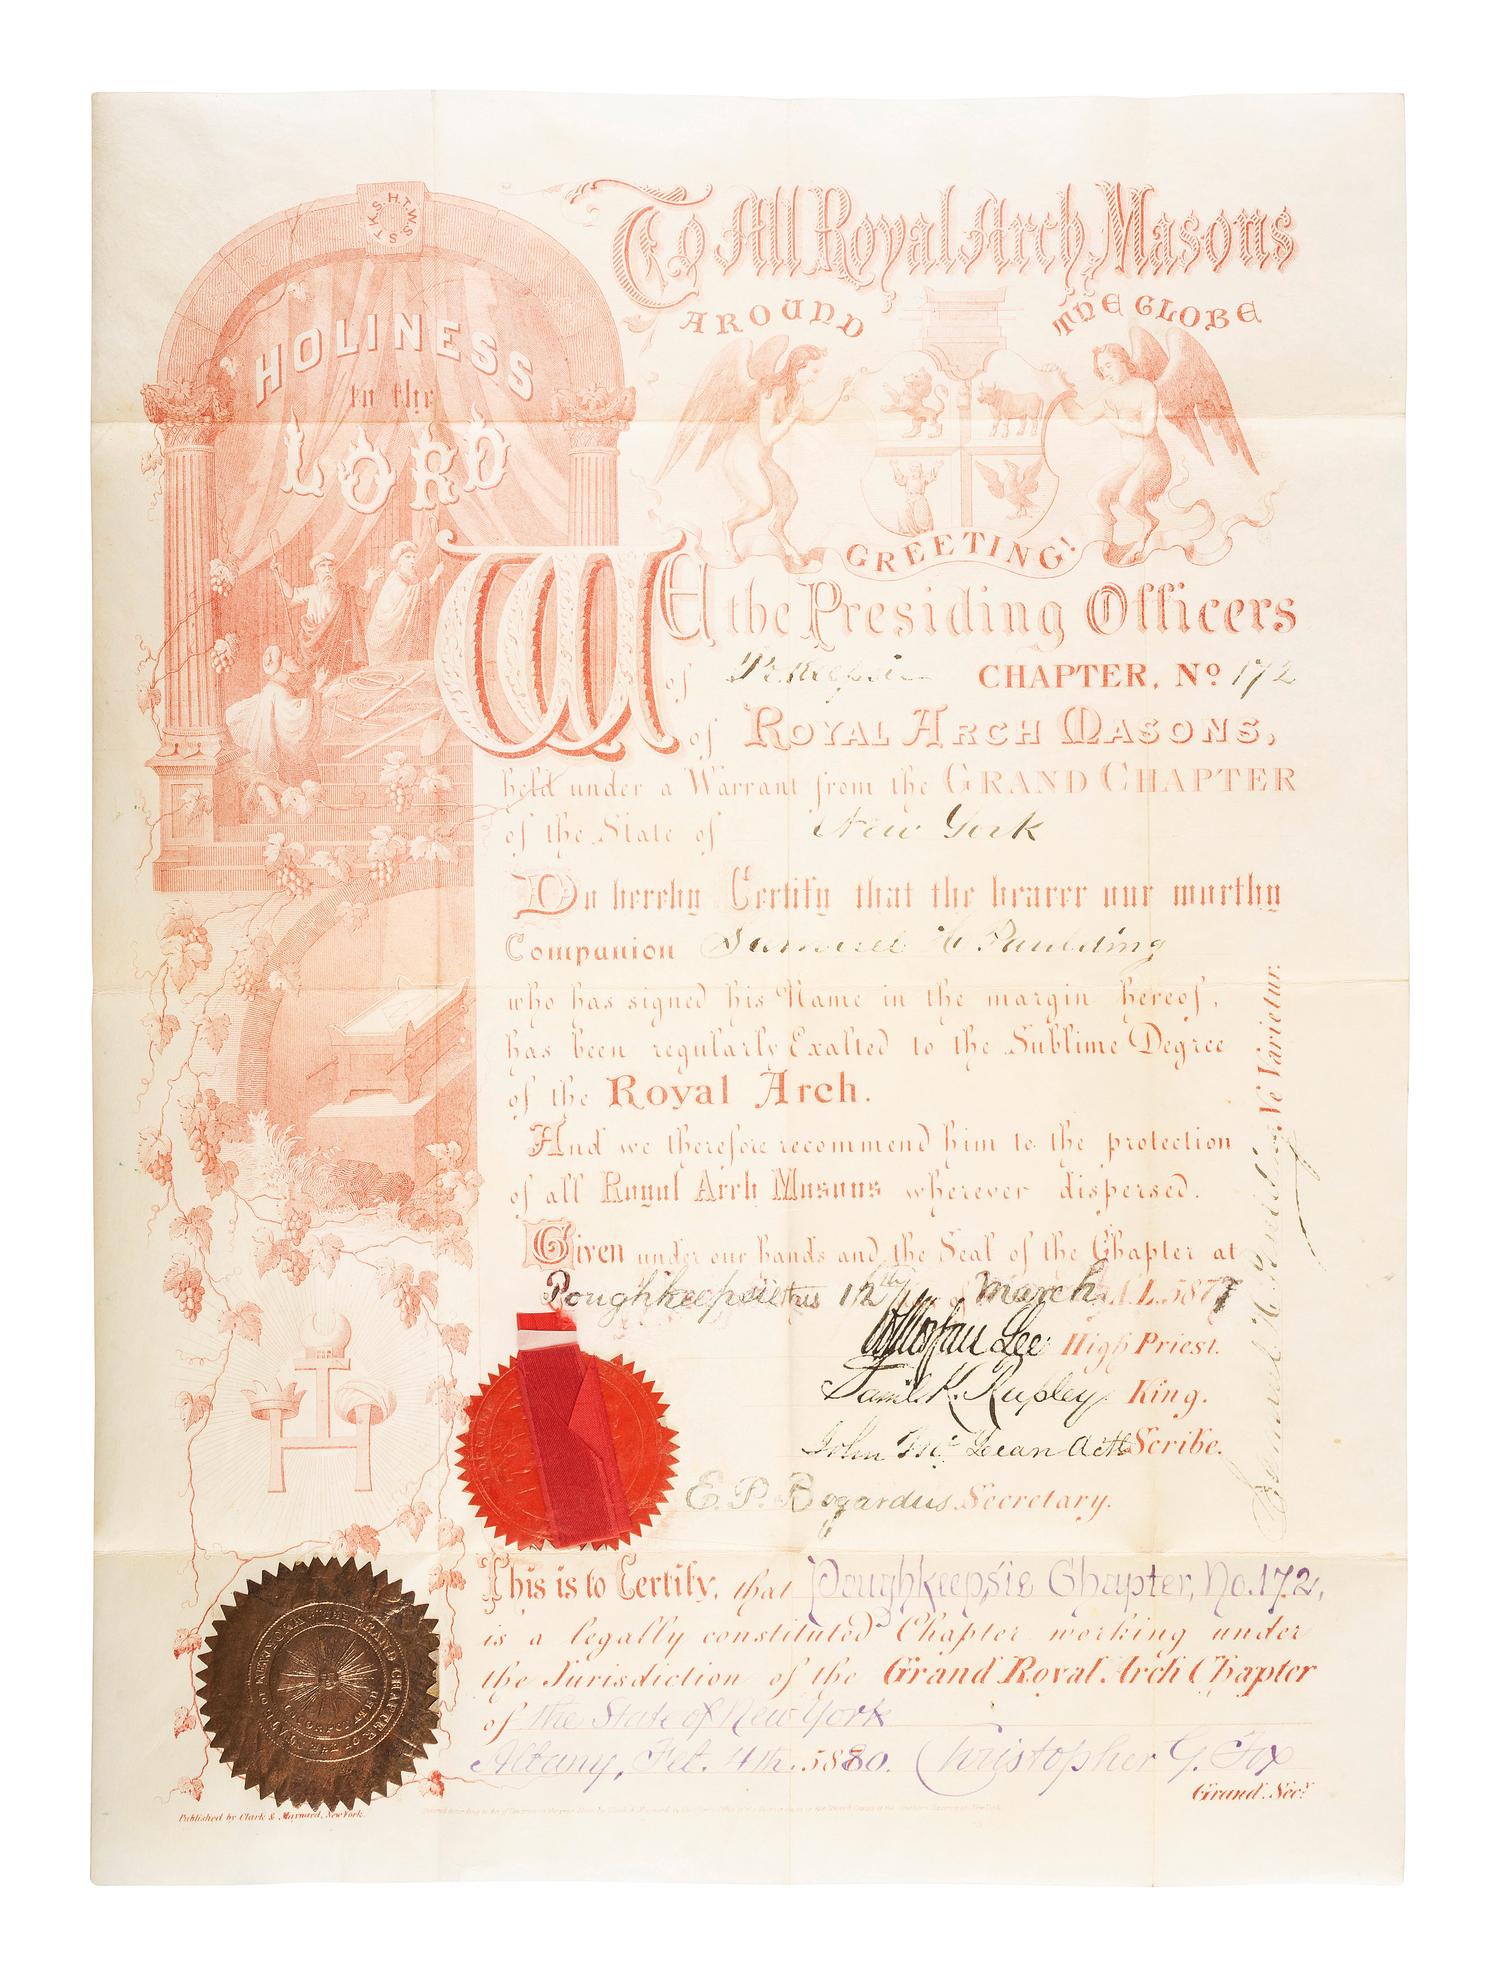 H.T.W.S.S.T.K.S.
HOLINESS
to the
LORD
To All Royal Arch Masons
AROUND THE GLOBE
GREETING!
WE the Presiding Officers
of Po'keepsie CHAPTER, No 172
of ROYAL ARCH MASONS,
held under a Warrant from the GRAND CHAPTER
of the State of New York
Do hereby Certify that the bearer our worthy
Companion Samuel H Paulding
who has signed his Name in the margin hereof,
has been regularly Exalted to the Sublime Degree
of the Royal Arch.
And we therefore recommend him to the protection
of all Royal Arch Masons wherever dispersed.
Given under our hands and the Seal of the Chapter at
Poughkeepsie this 12th March A.L. 5877
Lee High Priest.
Saml. K. Rupley King.
John Mc Lean Actg Scribe.
E. P. Bogardus Secretary.
Ne Varietur.
Samuel H Paulding
This is to Certify, that Poughkeepsie Chapter, No. 172,
is a legally constituted Chapter working under
the Jurisdiction of the Grand Royal Arch Chapter
of the State of New York
Albany, Feb. 4th. 5880. Christopher G. Fox
Grand Secy.
GRAND CHAPTER OF THE STATE OF NEW YORK
INCORPORATED
Published by Clark & Maynard, New York.